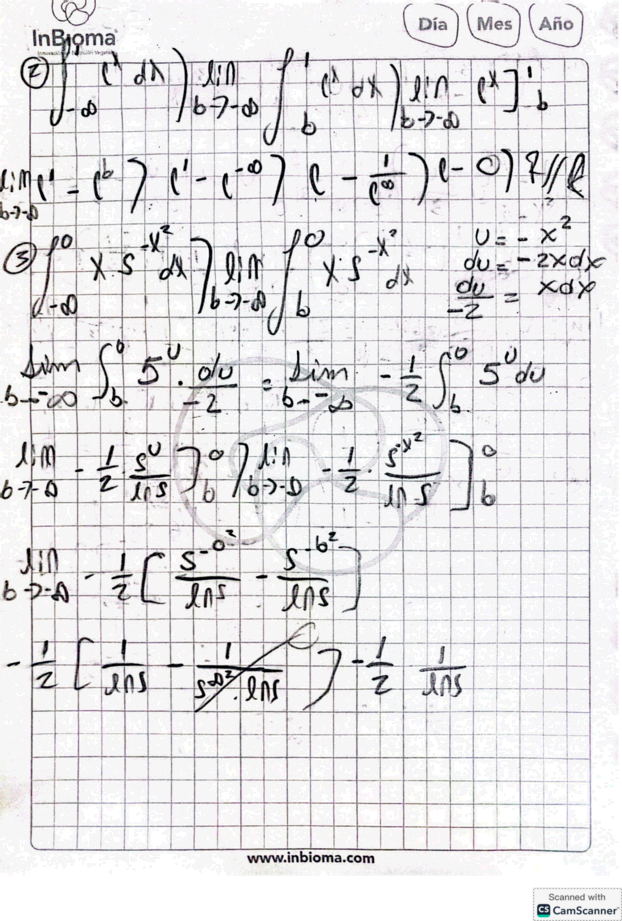 InBioma
Día Mes Año
② ∫_{-∞}^{1} e^x dx ) lim_{b→-∞} ∫_{b}^{1} e^x dx ) lim_{b→-∞} e^x ]_{b}^{1}
lim_{b→-∞} e^1 - e^b ) e^1 - e^{-∞} ) e - 1/e^∞ ) e - 0 )
③ ∫_{-∞}^{0} x 5^{-x^2} dx ) lim_{b→-∞} ∫_{b}^{0} x 5^{-x^2} dx
u = -x^2
du = -2x dx
du/-2 = x dx
Lim_{b→-∞} ∫_{b}^{0} 5^u · du/-2 = Lim_{b→-∞} - 1/2 ∫_{b}^{0} 5^u du
lim_{b→-∞} - 1/2 · 5^u/ln5 ]_{b}^{0} ) lim_{b→-∞} - 1/2 · 5^{-x^2}/ln 5 ]_{b}^{0}
lim_{b→-∞} - 1/2 [ 5^{-0^2}/ln5 - 5^{-b^2}/ln5 ]
- 1/2 [ 1/ln5 - 1/5^{-∞^2}·ln5 0 ] - 1/2 1/ln5
www.inbioma.com
Scanned with
CS CamScanner